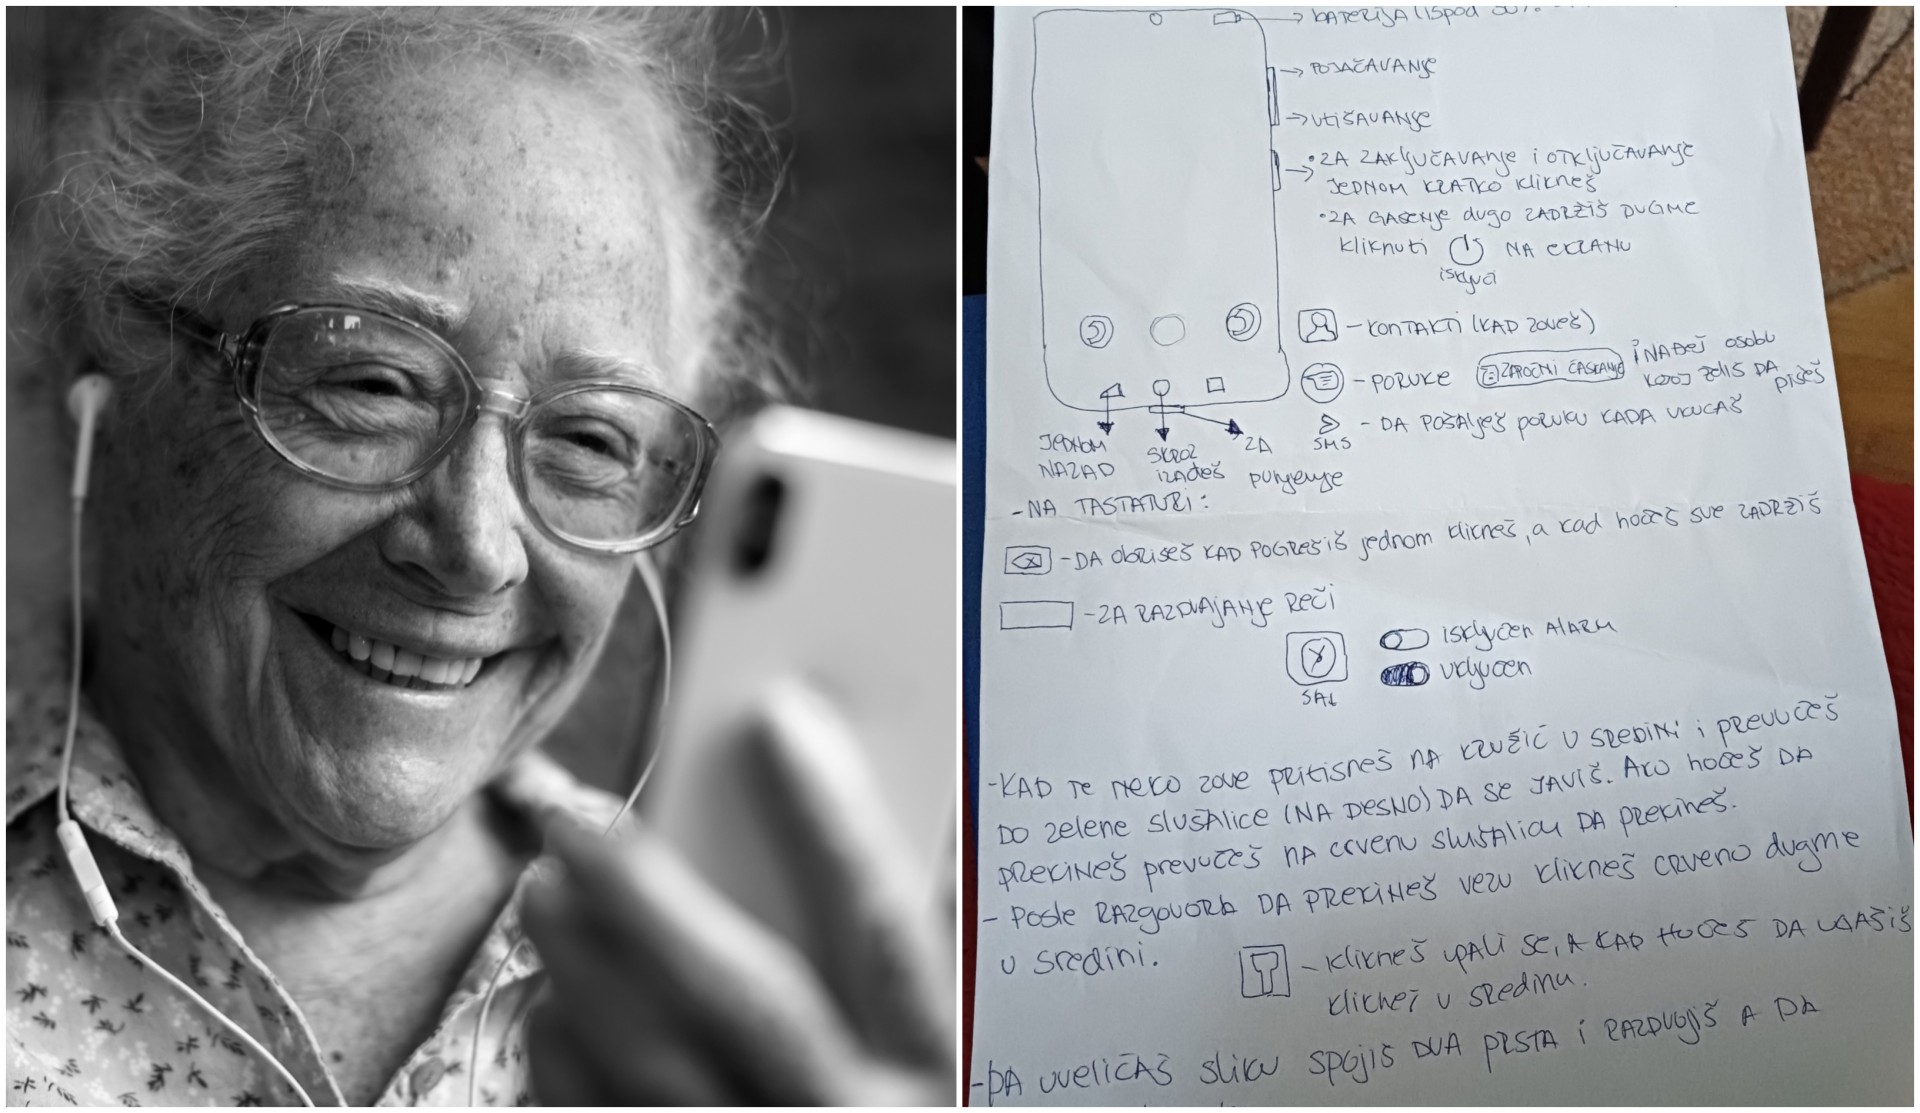 BATERIJA (ISPOD
POJAČAVANJE
UTIŠAVANJE
• ZA ZAKLJUČAVANJE I OTKLJUČAVANJE
JEDNOM KRATKO KLIKNEŠ
• ZA GAŠENJE dugo ZADRŽIŠ DUGME
kliknuti NA EKRANU
isključi
- KONTAKTI (KAD ZOVEŠ)
- PORUKE ZAPOČNI ĆASKANJE i NAĐEŠ OSOBU
KOJOJ želiš DA PIŠEŠ
SMS - DA POŠALJEŠ PORUKU KADA UKUCAŠ
JEDNOM NAZAD
SKROZ izađeš
ZA punjenje
- NA TASTATURI:
- DA obrišeš KAD POGREŠIŠ jednom klikneš, a kad hoćeš sve ZADRŽIŠ
- ZA RAZDVAJANJE REČI
SAT
isključen ALARM
uključen
- KAD TE NEKO ZOVE PRITISNEŠ NA KRUŽIĆ U SREDINI i PREVUČEŠ
DO zelene slušAlice (NA DESNO) DA SE JAVIŠ. AKO hoćeš DA
PREKINEŠ prevučeš NA crvenu slušalicu DA prekineš.
- Posle RAZgovora DA PREKINEŠ vezu klikneš crveno dugme
u sredini.
- klikneš upali se, A KAD HOĆEŠ DA UGASIŠ
klikneš u sredinu.
- DA uveličAŠ sliku spojiš DVA PRSTA i RAZDVOJIŠ A DA